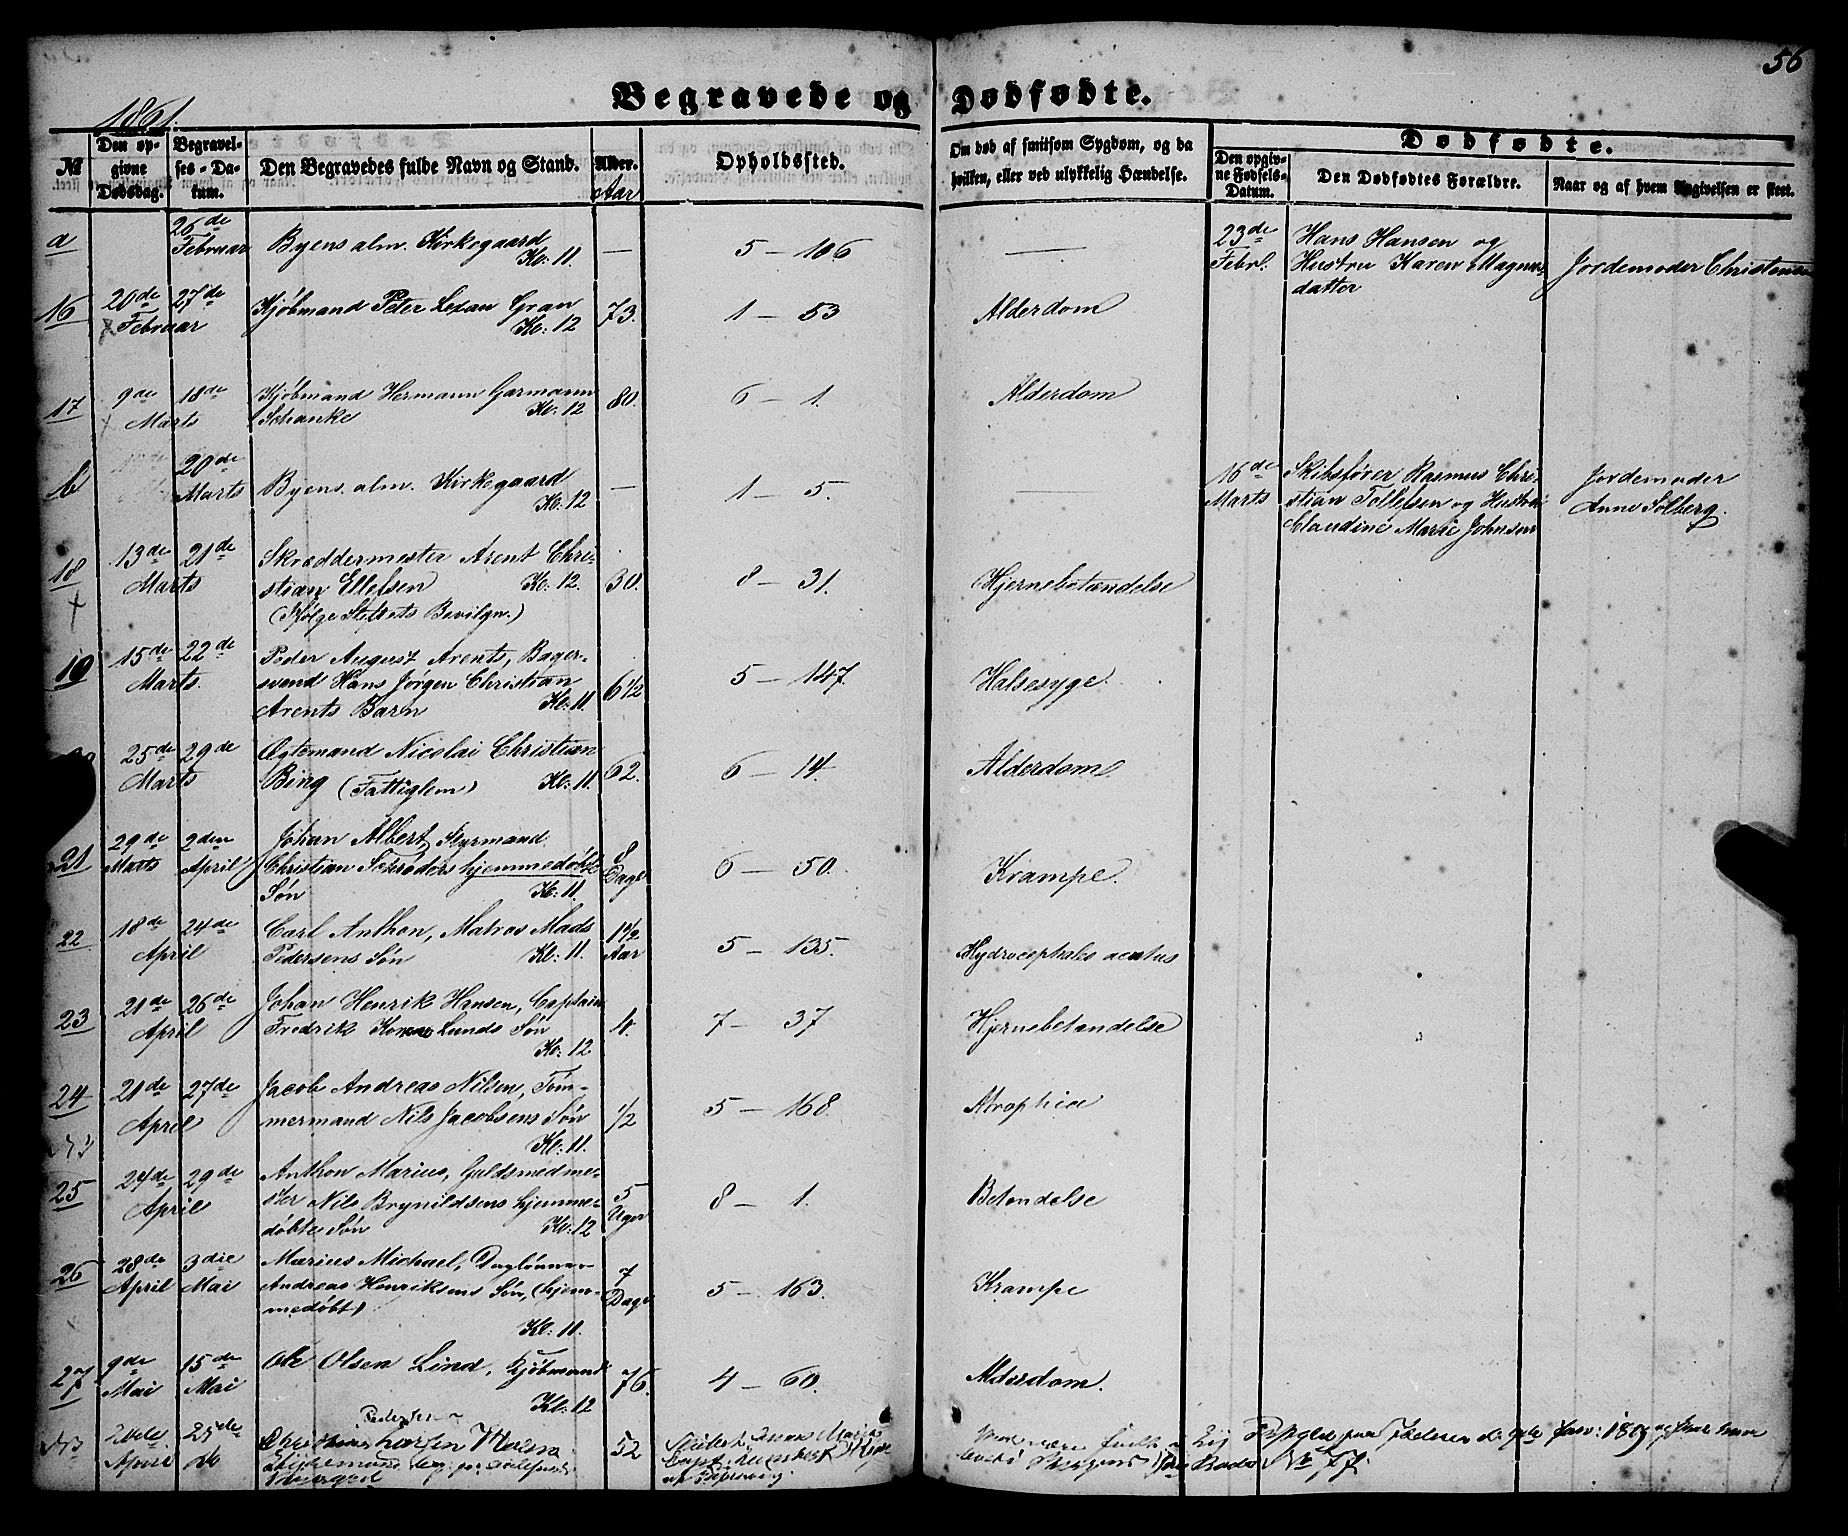 56
1861.
Begravede og Dødfødte.
No
Den opgivne Dødsdag.
Begravelses-Datum.
Den Begravedes fulde Navn og Stand.
Alder.
Aar
Opholdssted.
Om død af smitsom Sygdom, og da hvilken, eller ved ulykkelig Hændelse.
Dødfødte.
Den opgivne Fødsels-Datum.
Den Dødfødtes Forældre.
Naar og af hvem Angivelsen er skeet.
a 26de Februar Byens alm. Kirkegaard Kl: 11. — 5 — 106 — 23de Febr. Hans Hansen og Hustru Karen Magnusdatter Jordemoder Christensen
16 20de Februar 27de Kjøbmand Peter Lexau Gran Kl: 12 73. 1 — 53 Alderdom
17 9de Marts 18de Kjøbmand Hermann Garmann Schanke Kl: 12 80. 6 — 1. Alderdom
b 20de Marts Byens alm. Kirkegaard Kl: 12 — 1 — 5. — 16de Marts Skibsfører Rasmus Christian Tollefsen og Hustru Claudine Marie Johnsen Jordemoder Anne Solberg.
18 13de Marts 21de Skræddermester Arent Christian Ellefsen Kl: 12. (Ifølge Stiftets Bevilgn.) 30. 8 — 31. Hjernebetændelse
19 15de Marts. 22de Peder August Arents, Bagersvend Hans Jørgen Christian Arents Barn Kl: 11. 6 1/2 5 — 147. Halsesyge.
25de Marts 29de Ægtemand Nicolai Christian Bing (Fattiglem) Kl: 11. 62. 6 — 14. Alderdom
21 29de Marts 2den April Johan Albert, Styrmand Christian Schrøders hjemmedøbte Søn Kl: 11. 8 Dage 6 — 50. Krampe.
22 18de April 24de Carl Anthon, Matros Mads Pedersens Søn Kl: 11. 1 1/2 Aar 5 — 135. Hydrocephales acutus
23 21de April 26de Johan Henrik Hansen, Captain Fredrik Lunds Søn Kl: 12 4. 7 — 37 Hjernebetændelse
24 21de April 27de Jacob Andreas Nilsen, Tømmermand Nils Jacobsens Søn Kl: 11. 1/2 5 — 168. Atrophia
25 24de April 29de Anthon Marius, Guldsmedmester Nils Brynildsens hjemmedøbte Søn Kl: 12 5 Uger 8 — 1. Betændelse
26 28de April 3die Mai Marius Michael, Daglønner Andreas Henriksens Søn, (hjemmedøbt) Kl: 11. 7 Dage 5 — 163. Krampe
27 9de Mai 15de Mai Ole Olsen Lind, Kjøbmand Kl: 12 76. 4 — 60. Alderdom.
April 25de Pedersen 52 No 77.